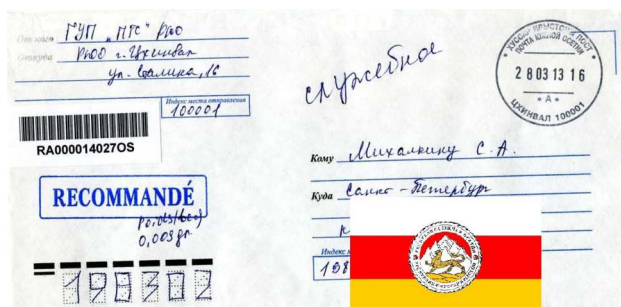 От кого ГУП „МТС“ РЮО
Откуда РЮО г. Цхинвал
ул. Сталина, 16
Индекс места отправления
100001
RA000014027OS
RECOMMANDÉ
0,009 gr.
служебное
ХУССАР ИРЫСТОНЫ ПОСТ
ПОЧТА ЮЖНОЙ ОСЕТИИ
28 03 13 16
* А *
ЦХИНВАЛ 100001
Кому Михалкину С. А.
Куда Санкт-Петербург
Индекс
198
199302